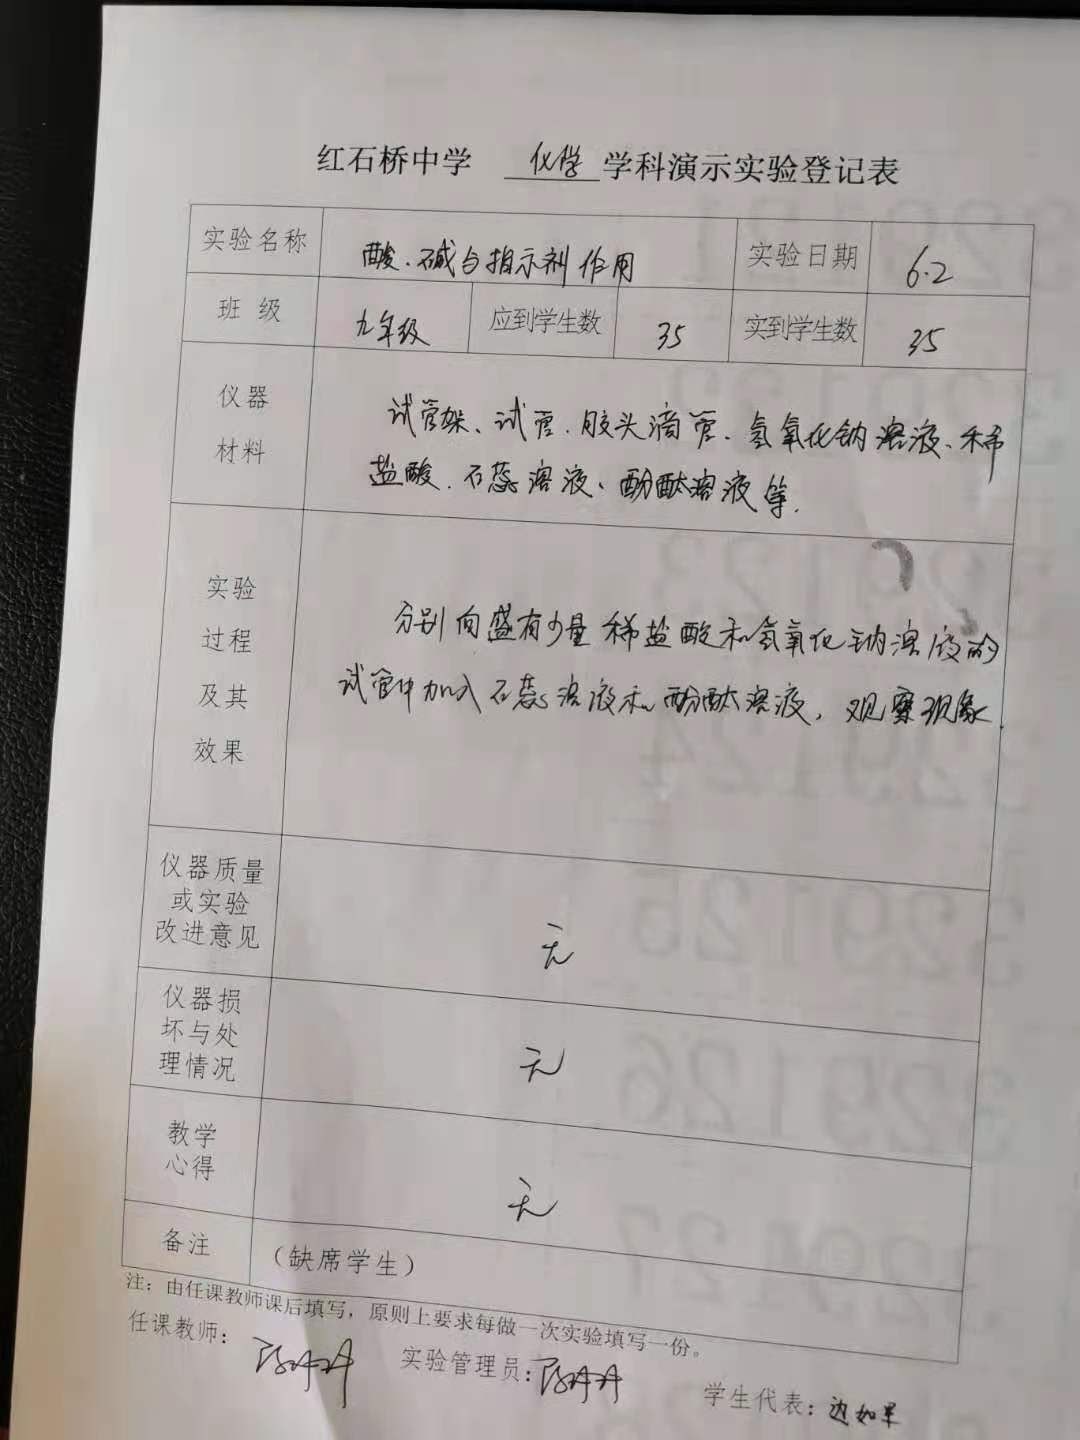 红石桥中学 化学 学科演示实验登记表
实验名称 酸、碱与指示剂作用 实验日期 6.2
班 级 九年级 应到学生数 35 实到学生数 35
仪器
材料
试管架、试管、胶头滴管、氢氧化钠溶液、稀
盐酸、石蕊溶液、酚酞溶液等.
实验
过程
及其
效果
分别向盛有少量稀盐酸和氢氧化钠溶液的
试管中加入石蕊溶液和酚酞溶液，观察现象.
仪器质量
或实验
改进意见
无
仪器损
坏与处
理情况
无
教学
心得
无
备注 （缺席学生）
注：由任课教师课后填写，原则上要求每做一次实验填写一份。
任课教师： 实验管理员： 学生代表：边如